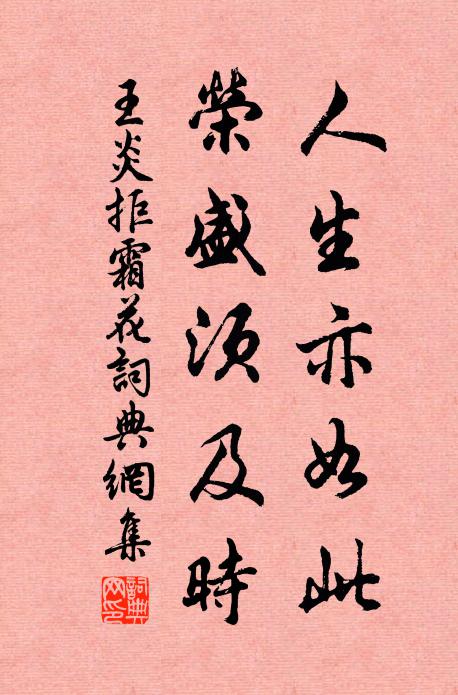 人生亦如此
榮盛須及時
王炎拒霜花詞典網集
詞典網印